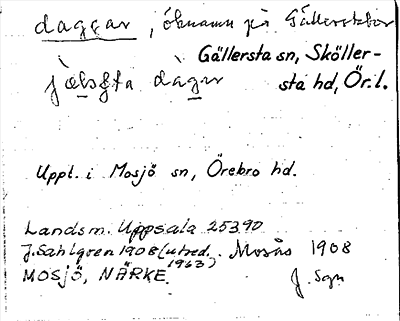 daggar, öknamn på Gällerstabor
Gällersta sn, Sköller-
sta hd, Ör.l.
jælsta dagar
Uppt. i Mosjö sn, Örebro hd.
Landsm. Uppsala 25390
J. Sahlgren 1908 (utred. 1963) Mosås 1908
MOSJÖ, NÄRKE. J. Sgn